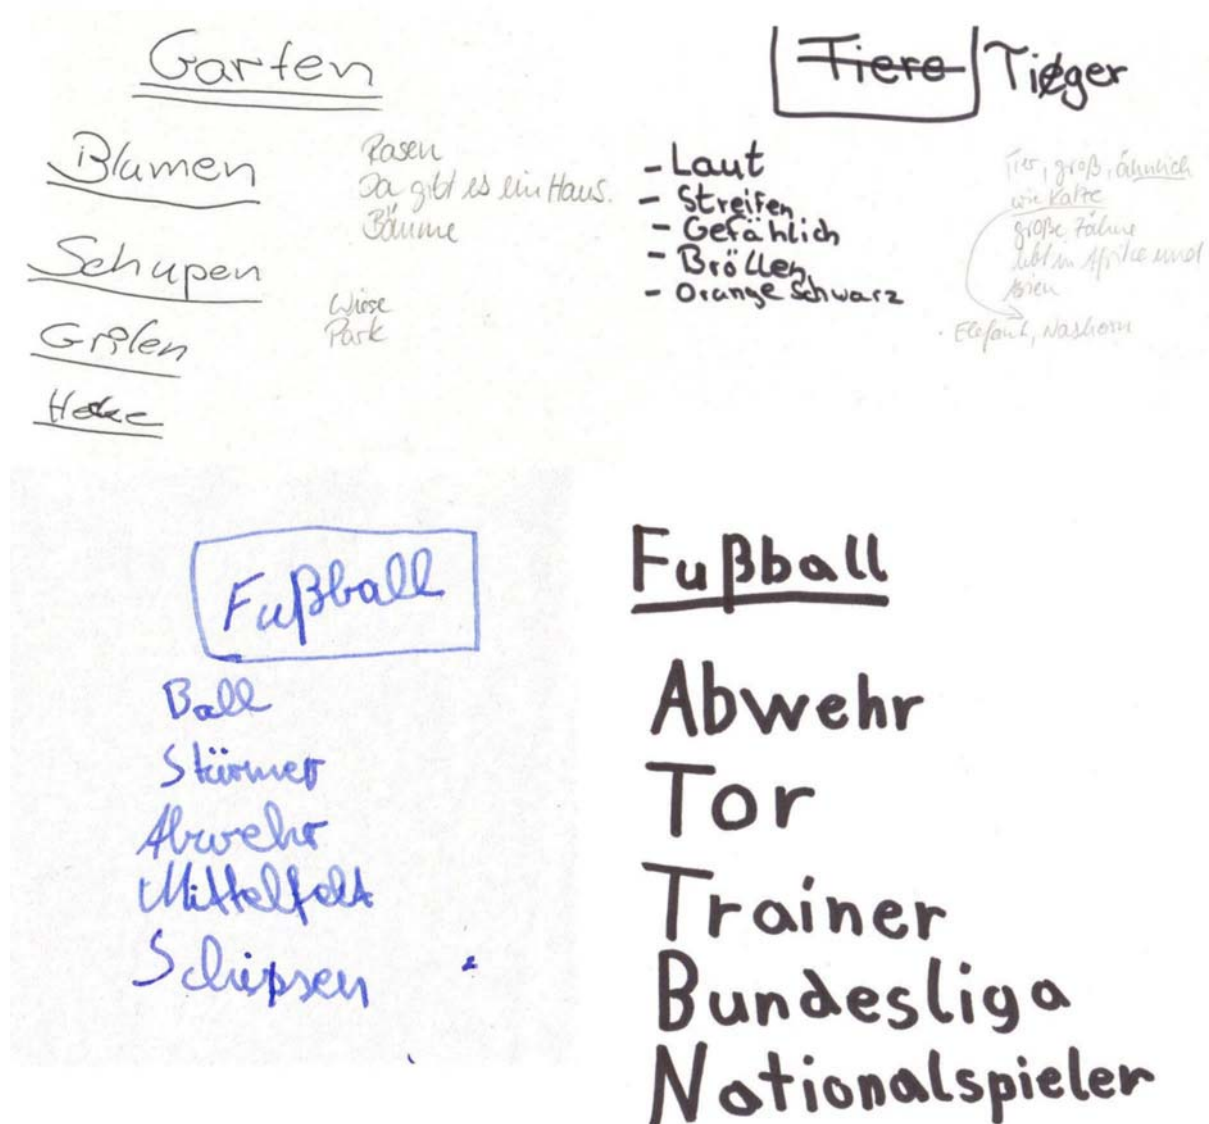 Garten
Blumen
Schupen
Grilen
Hecke
Rasen
Da gibt es ein Haus.
Bäume
Wiese
Park
Tiere Tieger
- Laut
- Streifen
- Gefählich
- Bröllen
- Orange Schwarz
Tier, groß, ähnlich
wie Katze
große Zähne
lebt in Afrika und
Asien
Elefant, Nashorn
Fußball
Ball
Stürmer
Abwehr
Mittelfelt
Schipsen
Fußball
Abwehr
Tor
Trainer
Bundesliga
Nationalspieler